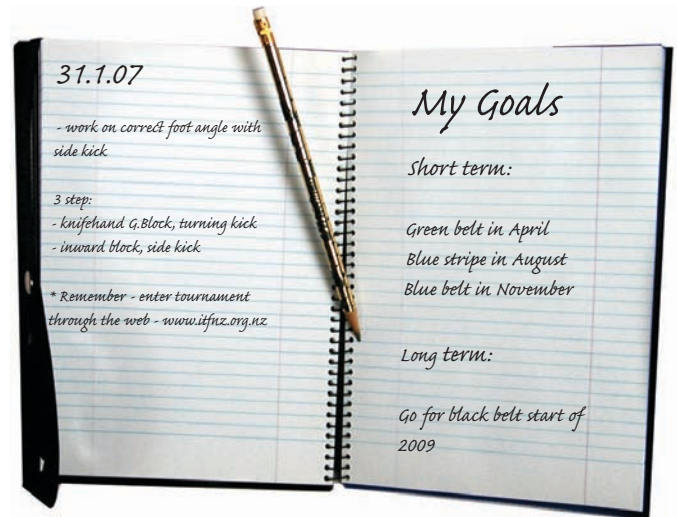 31.1.07
- work on correct foot angle with
side kick
3 step:
- knifehand G.Block, turning kick
- inward block, side kick
* Remember - enter tournament
through the web - www.itfnz.org.nz
My Goals
Short term:
Green belt in April
Blue stripe in August
Blue belt in November
Long term:
Go for black belt start of
2009